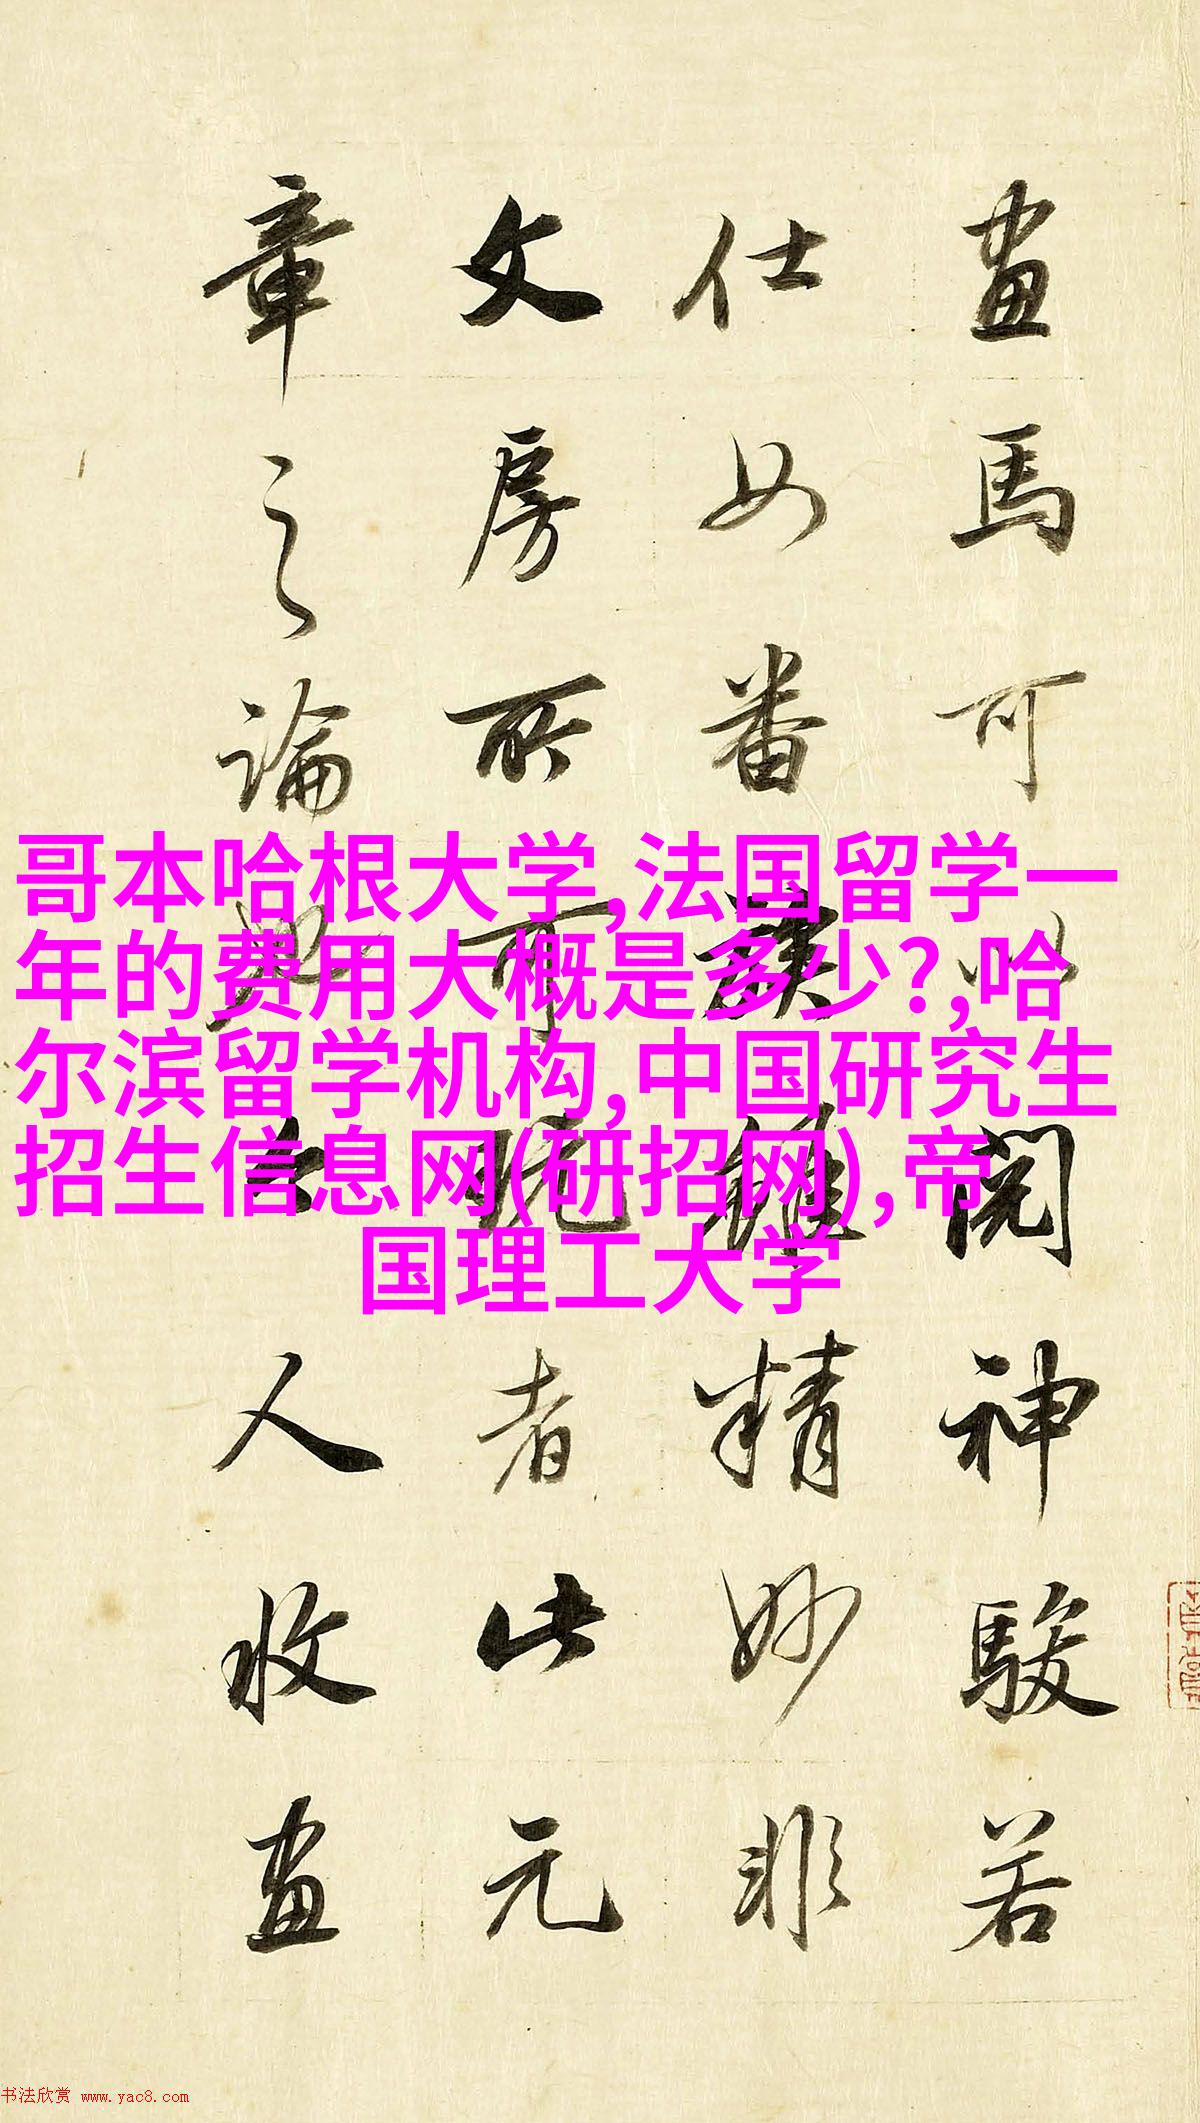 畫馬可以閱神駿若
仕女番族雖精妙非
文房所可玩者此元
章之論與
人收畫
哥本哈根大学,法国留学一
年的费用大概是多少?,哈
尔滨留学机构,中国研究生
招生信息网(研招网),帝
国理工大学
书法欣赏 www.yac8.com